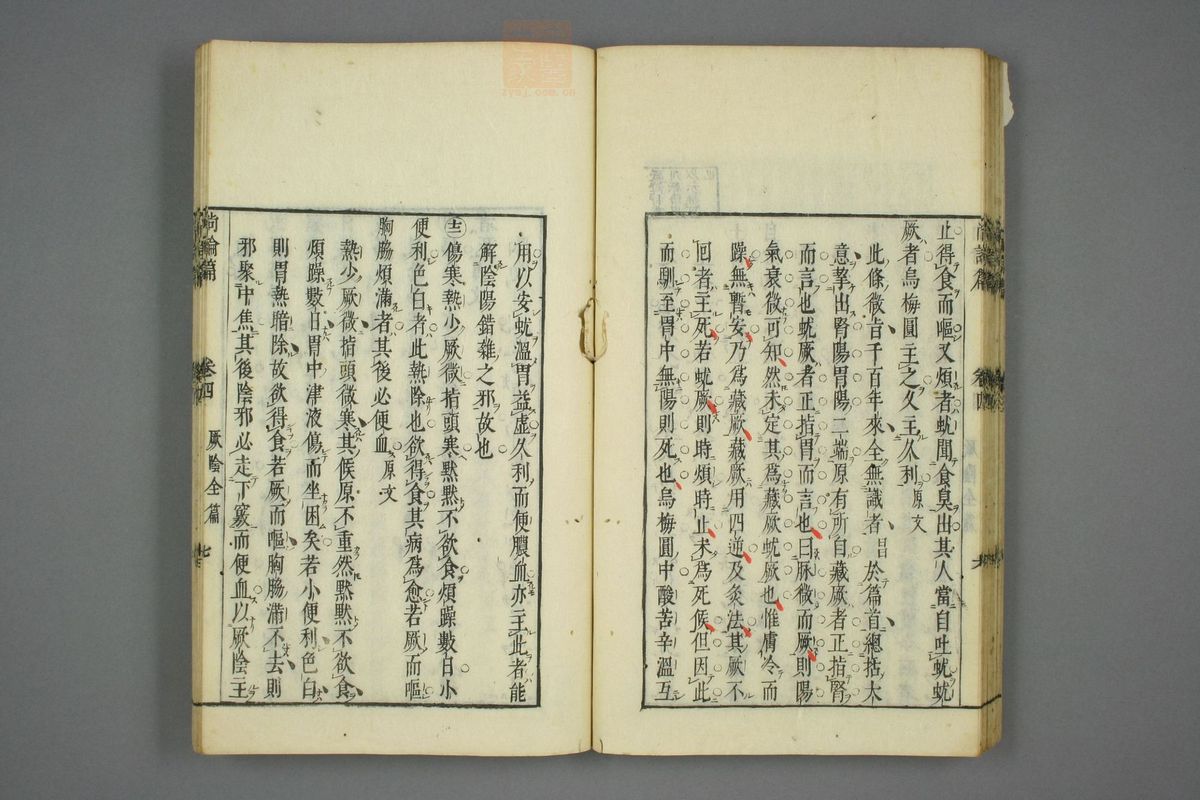 止得食而嘔又煩者蚘聞食臭出其人當自吐蚘蚘
厥者烏梅圓主之又主久利原文
此條微旨千百年來全無識者昌於篇首總括大
意挈出腎陽胃陽二端原有所自藏厥者正指腎
而言也蚘厥者正指胃而言也曰脉微而厥則陽
氣衰微可知然未定其爲藏厥蚘厥也惟膚冷而
躁無暫安乃爲藏厥藏厥用四逆及灸法其厥不
囘者主死若蚘厥則時煩時止未爲死候但因此
而馴至胃中無陽則死也烏梅圓中酸苦辛溫互
用以安蚘溫胃益虛久利而便膿血亦主此者能
解陰陽錯雜之邪故也
傷寒熱少厥微指頭寒默默不欲食煩躁數日小
便利色白者此熱除也欲得食其病爲愈若厥而嘔
胸脇煩滿者其後必便血原文
熱少厥微指頭微寒其候原不重然默默不欲食
煩躁數日胃中津液傷而坐困矣若小便利色白
則胃熱暗除故欲得食若厥而嘔胸脇滿不去則
邪聚中焦其後陰邪必走下竅而便血以厥陰主
尚論篇 卷四 厥陰全篇 七
zysj.com.cn